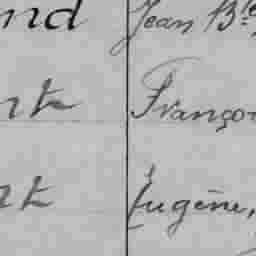 nd Jean Bte
nt Franço
nt Eugène,